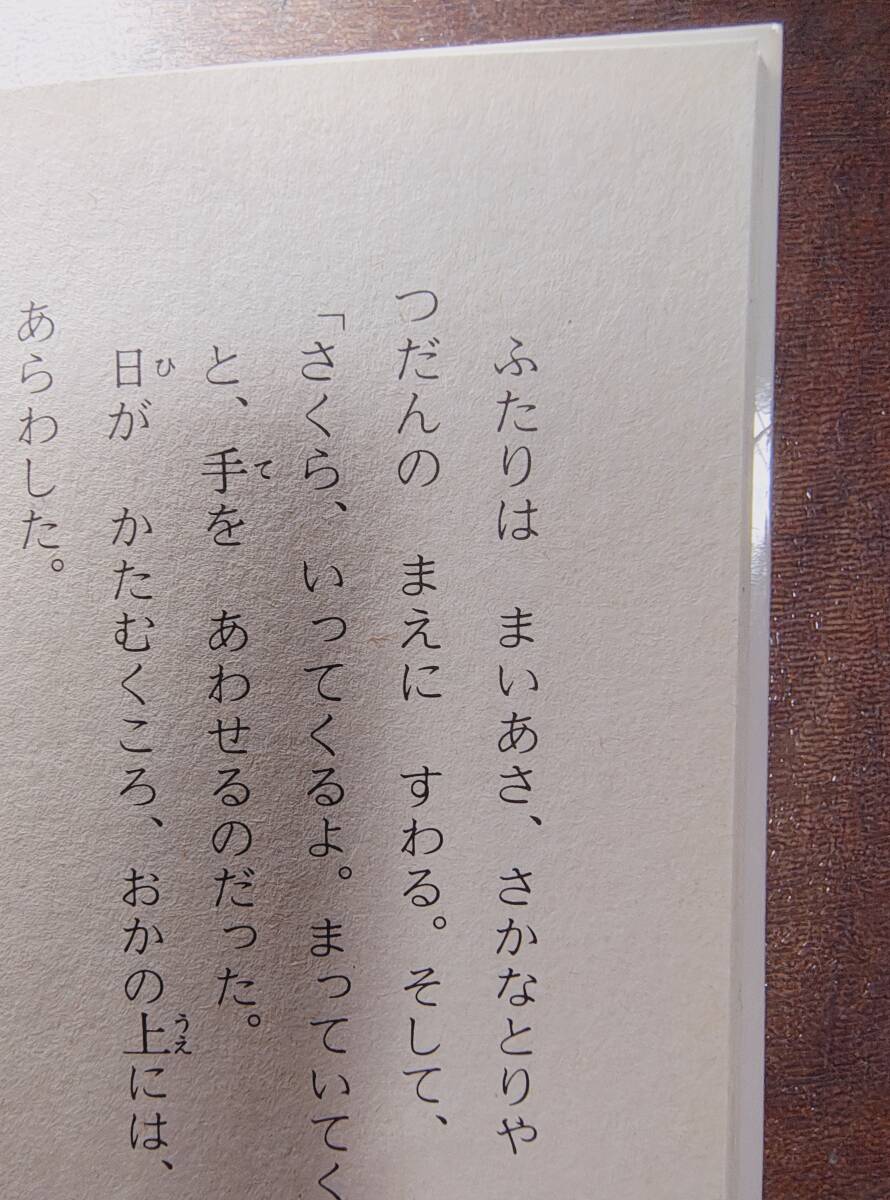 ふたりは　まいあさ、さかなとりや
つだんの　まえに　すわる。そして、
「さくら、いってくるよ。まっていてく
と、手を　あわせるのだった。
日が　かたむくころ、おかの上には、
あらわした。